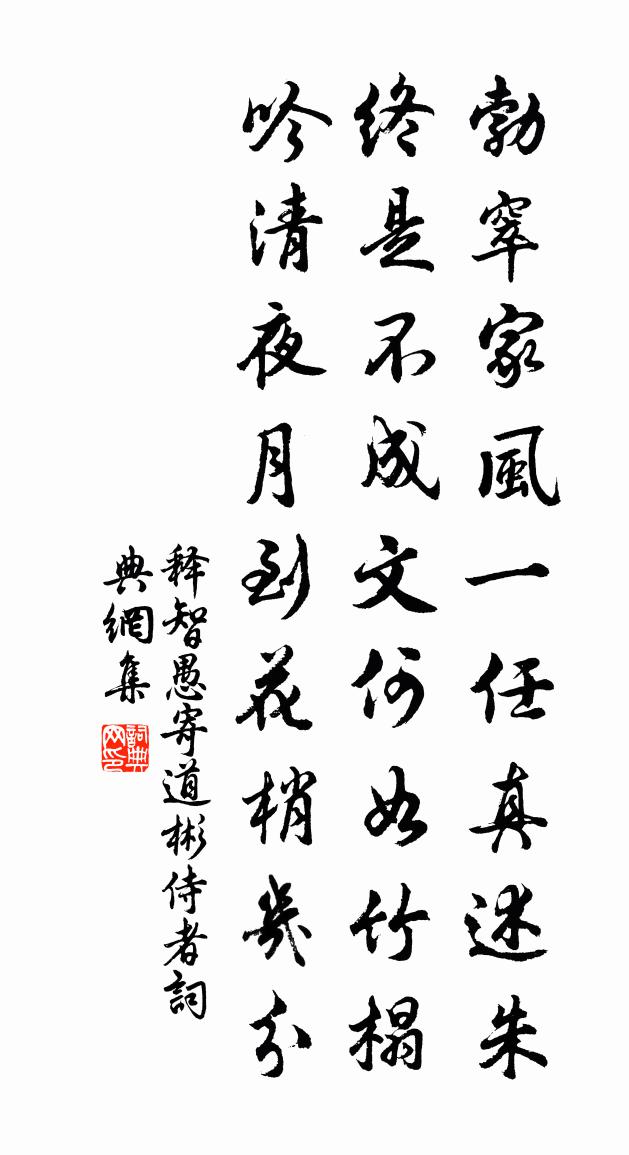 勃窣家風一任真述朱
終是不成文何如竹榻
吟清夜月到花梢幾分
释智愚寄道彬侍者詞
典網集
詞典网印